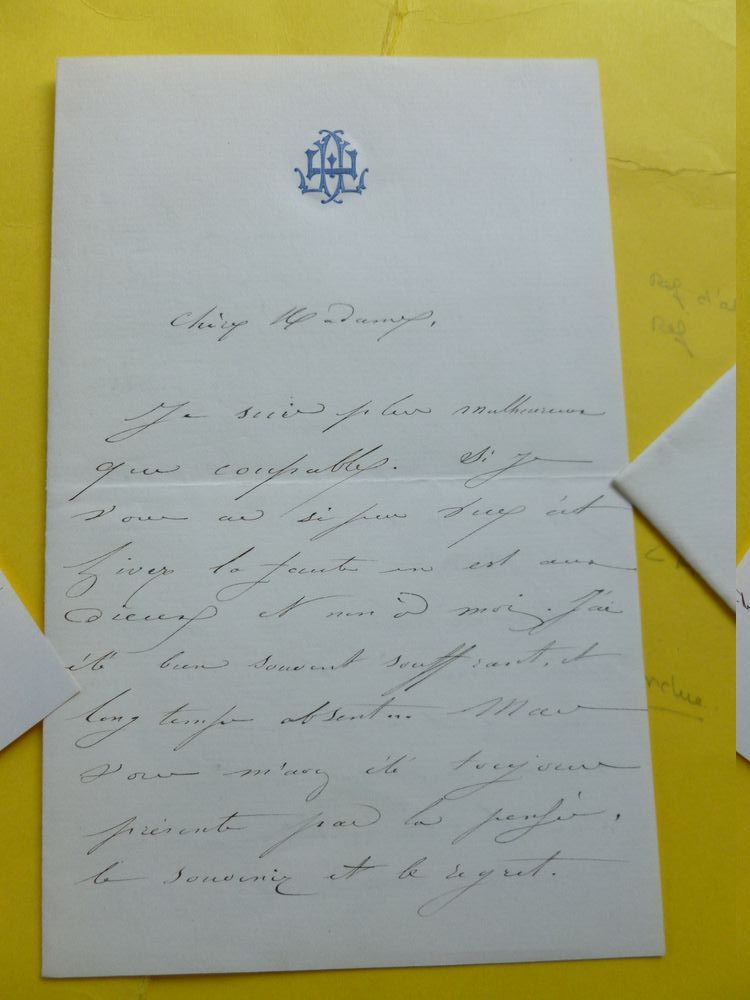 Chère Madame,
Je suis plus malheureux
que coupable. Si je
vous ai si peu vue cet
hiver la faute en est aux
dieux et non à moi. J'ai
été bien souvent souffrant, et
long temps absent. Mais
vous m'avez été toujours
présente par la pensée,
le souvenir et le regret.
Ref